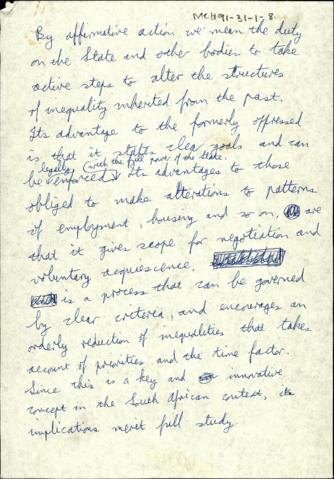 MCH91-31-1-8
By affirmative action we mean the duty
on the State and other bodies to take
active steps to alter the structures
of inequality inherited from the past.
Its advantage to the formerly oppressed
is that it states clear goals and can
legally (with the full power of the State.
be enforced Its advantages to those
obliged to make alterations to patterns
of employment, housing and so on, are
that it gives scope for negotiation and
voluntary acquiescence.
is a process that can be governed
by clear criteria, and encourages an
orderly reduction of inequalities that takes
account of priorities and the time factor.
Since this is a key and innovative
concept in the South African context, its
implications merit full study.